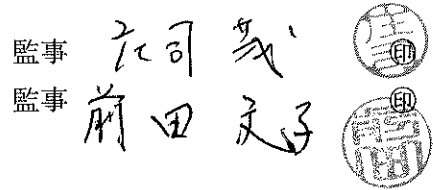 監事 庄司 茂 印
監事 前田 文子 印